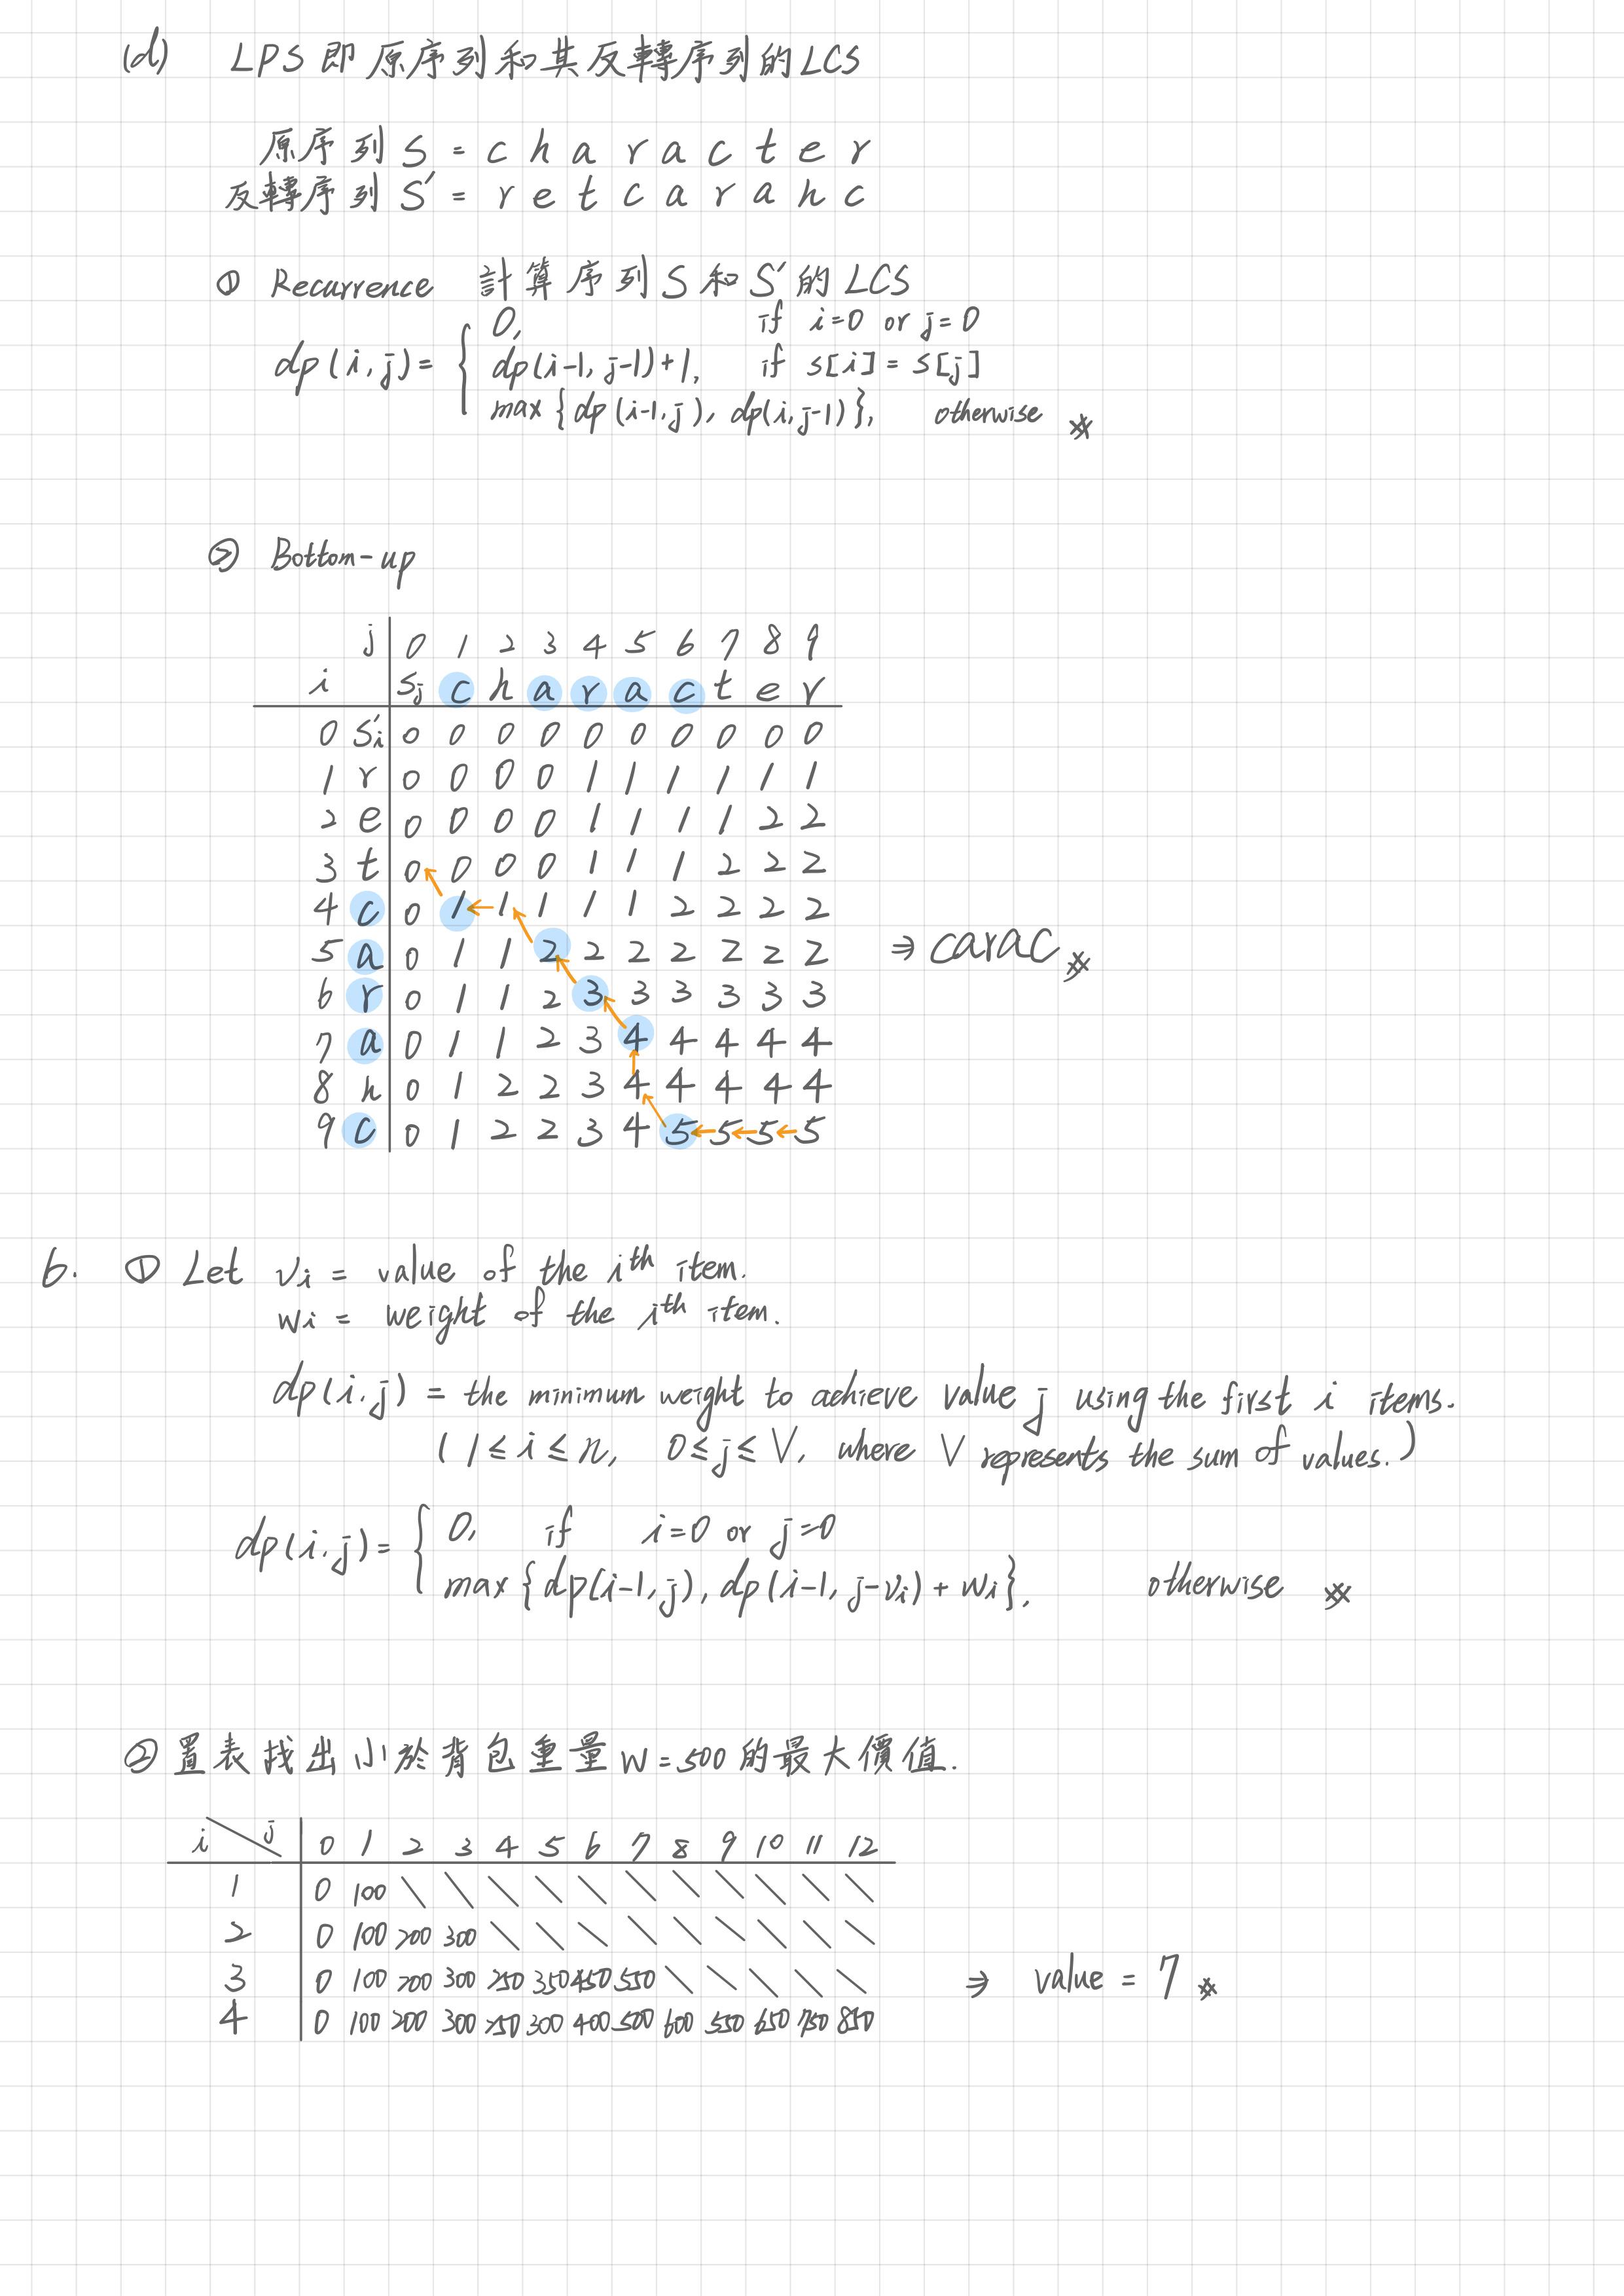 (d) LPS 即原序列和其反轉序列的LCS
原序列 S = c h a r a c t e r
反轉序列 S' = r e t c a r a h c
① Recurrence 計算序列S和S'的LCS
dp(i,j) = { 0, if i=0 or j=0
dp(i-1, j-1)+1, if s[i] = s[j]
max{dp(i-1,j), dp(i,j-1)}, otherwise
② Bottom-up
j 0 1 2 3 4 5 6 7 8 9
i Sj c h a r a c t e r
0 S'i 0 0 0 0 0 0 0 0 0 0
1 r 0 0 0 0 1 1 1 1 1 1
2 e 0 0 0 0 1 1 1 1 2 2
3 t 0 0 0 0 1 1 1 2 2 2
4 c 0 1 1 1 1 1 2 2 2 2
5 a 0 1 1 2 2 2 2 2 2 2 ⇒ carac
6 r 0 1 1 2 3 3 3 3 3 3
7 a 0 1 1 2 3 4 4 4 4 4
8 h 0 1 2 2 3 4 4 4 4 4
9 c 0 1 2 2 3 4 5 5 5 5
6. ① Let vi = value of the ith item.
wi = weight of the ith item.
dp(i,j) = the minimum weight to achieve value j using the first i items.
(1≤i≤n, 0≤j≤V, where V represents the sum of values.)
dp(i,j) = { 0, if i=0 or j=0
max{dp(i-1,j), dp(i-1, j-vi)+wi}, otherwise
② 置表找出小於背包重量W=500的最大價值.
i j 0 1 2 3 4 5 6 7 8 9 10 11 12
1 0 100 \ \ \ \ \ \ \ \ \ \ \
2 0 100 200 300 \ \ \ \ \ \ \ \ \
3 0 100 200 300 250 350 450 550 \ \ \ \ \ ⇒ value = 7
4 0 100 200 300 250 300 400 500 600 550 650 750 850